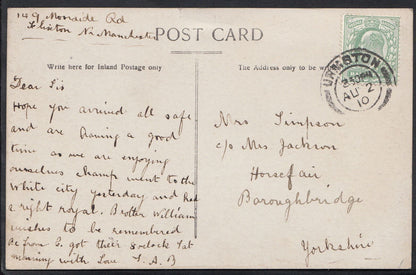 149 Moorside Rd
Flixton Nr Manchester
POST CARD
Write here for Inland Postage only
The Address only to be
URMSTON
8.30PM
AU 2
10
Dear Sis
Hope you arrived all safe
and are having a good
time as we are enjoying
ourselves champ went to the
White city yesterday and had
a right royal. Brother William
wishes to be remembered
I got their 8 oclock Sat
morning with Love
Mrs Simpson
c/o Mrs Jackson
Horsefair
Boroughbridge
Yorkshire